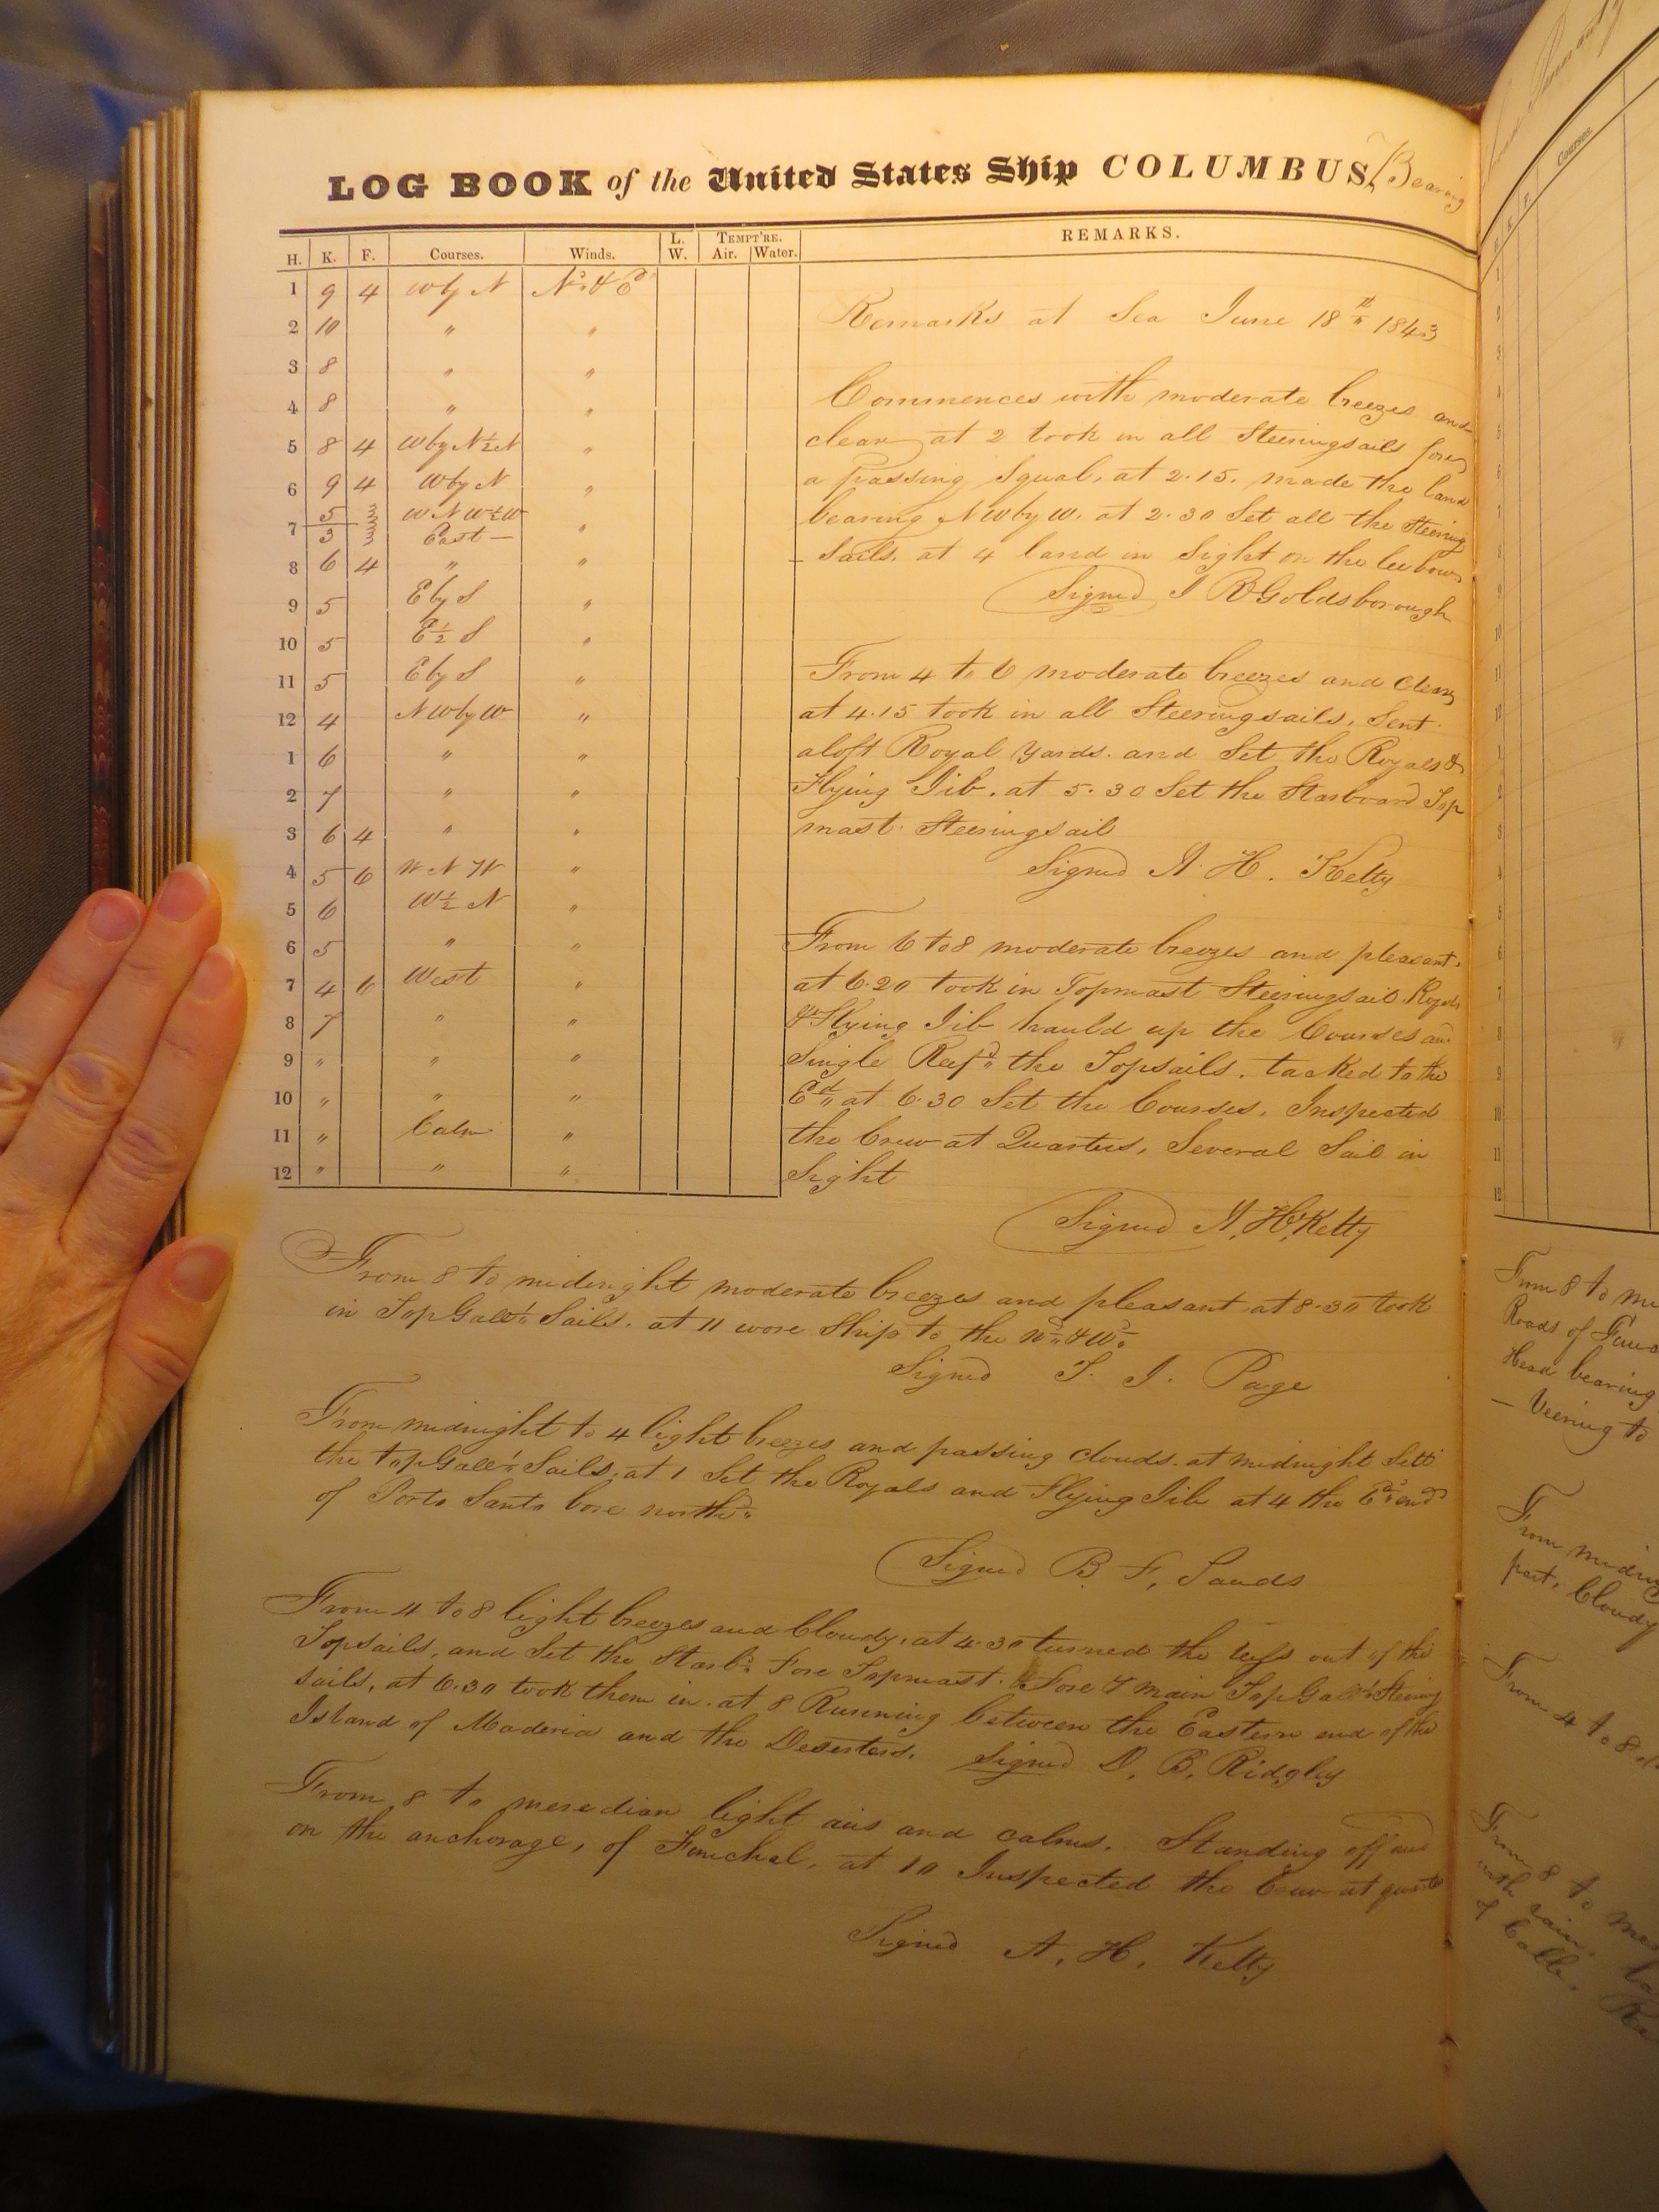 LOG BOOK of the United States Ship COLUMBUS, Bearing
H. K. F. Courses. Winds. L. W. TEMPT'RE. Air. Water. REMARKS.
1 9 4 W by N Nd & Ed
2 10 " "
3 8 " "
4 8 " "
5 8 4 W by N ½ N "
6 9 4 W by N "
7 5 W N W ½ W "
3 East —
8 6 4 " "
9 5 E by S "
10 5 E ½ S "
11 5 E by S "
12 4 N W by W "
1 6 " "
2 7 " "
3 6 4 " "
4 5 6 W N W "
5 6 W ½ N "
6 5 " "
7 4 6 West "
8 7 " "
9 " " "
10 " " "
11 " Calm "
12 " " "
Remarks at Sea June 18th 1843
Commences with moderate breezes and
clear, at 2 took in all Steeringsails for
a passing Squal, at 2.15. made the land
bearing N W by W. at 2.30 Set all the Steering
- Sails, at 4 land in Sight on the lee bow
Signed J R Goldsborough
From 4 to 6 moderate breezes and Clear,
at 4.15 took in all Steeringsails, Sent
aloft Royal Yards. and Set the Royals &
Flying Jib. at 5.30 Set the Starboard Top
mast. Steeringsail
Signed A. H. Kelty
From 6 to 8 moderate breezes and pleasant,
at 6.20 took in Topmast Steeringsail Royals
& Flying Jib hauld up the Courses and
Single Reefd the Topsails. tacked to the
Ed at 6.30 Set the Courses, Inspected
the Crew at Quarters, Several Sail in
Sight
Signed A. H. Kelty
From 8 to midnight moderate breezes and pleasant at 8.30 took
in TopGallt Sails. at 11 wore Ship to the Nd & Wd
Signed T. J. Page
From midnight to 4 light breezes and passing clouds. at midnight Sett
the topGallt Sails, at 1 Set the Royals and Flying Jib at 4 the Ed end
of Porto Santo bore northd
Signed B. F. Sands
From 4 to 8 light breezes and Cloudy, at 4.30 turned the reefs out of the
Topsails, and Set the Starbd Fore Topmast. Fore & main TopGallt Steering
sails, at 6.30 took them in. at 8 Running between the Eastern end of the
Island of Maderia and the Deserters. Signed D. B. Ridgley
From 8 to meredian light airs and calms. Standing off and
on the anchorage, of Funchal, at 10 Inspected the Crew at quarters
Signed A. H. Kelty
Courses.
From 8 to
Roads of
Head bearing
- Veering to
From
part, Cloudy
From 4 to 8
From 8 to
with rain,